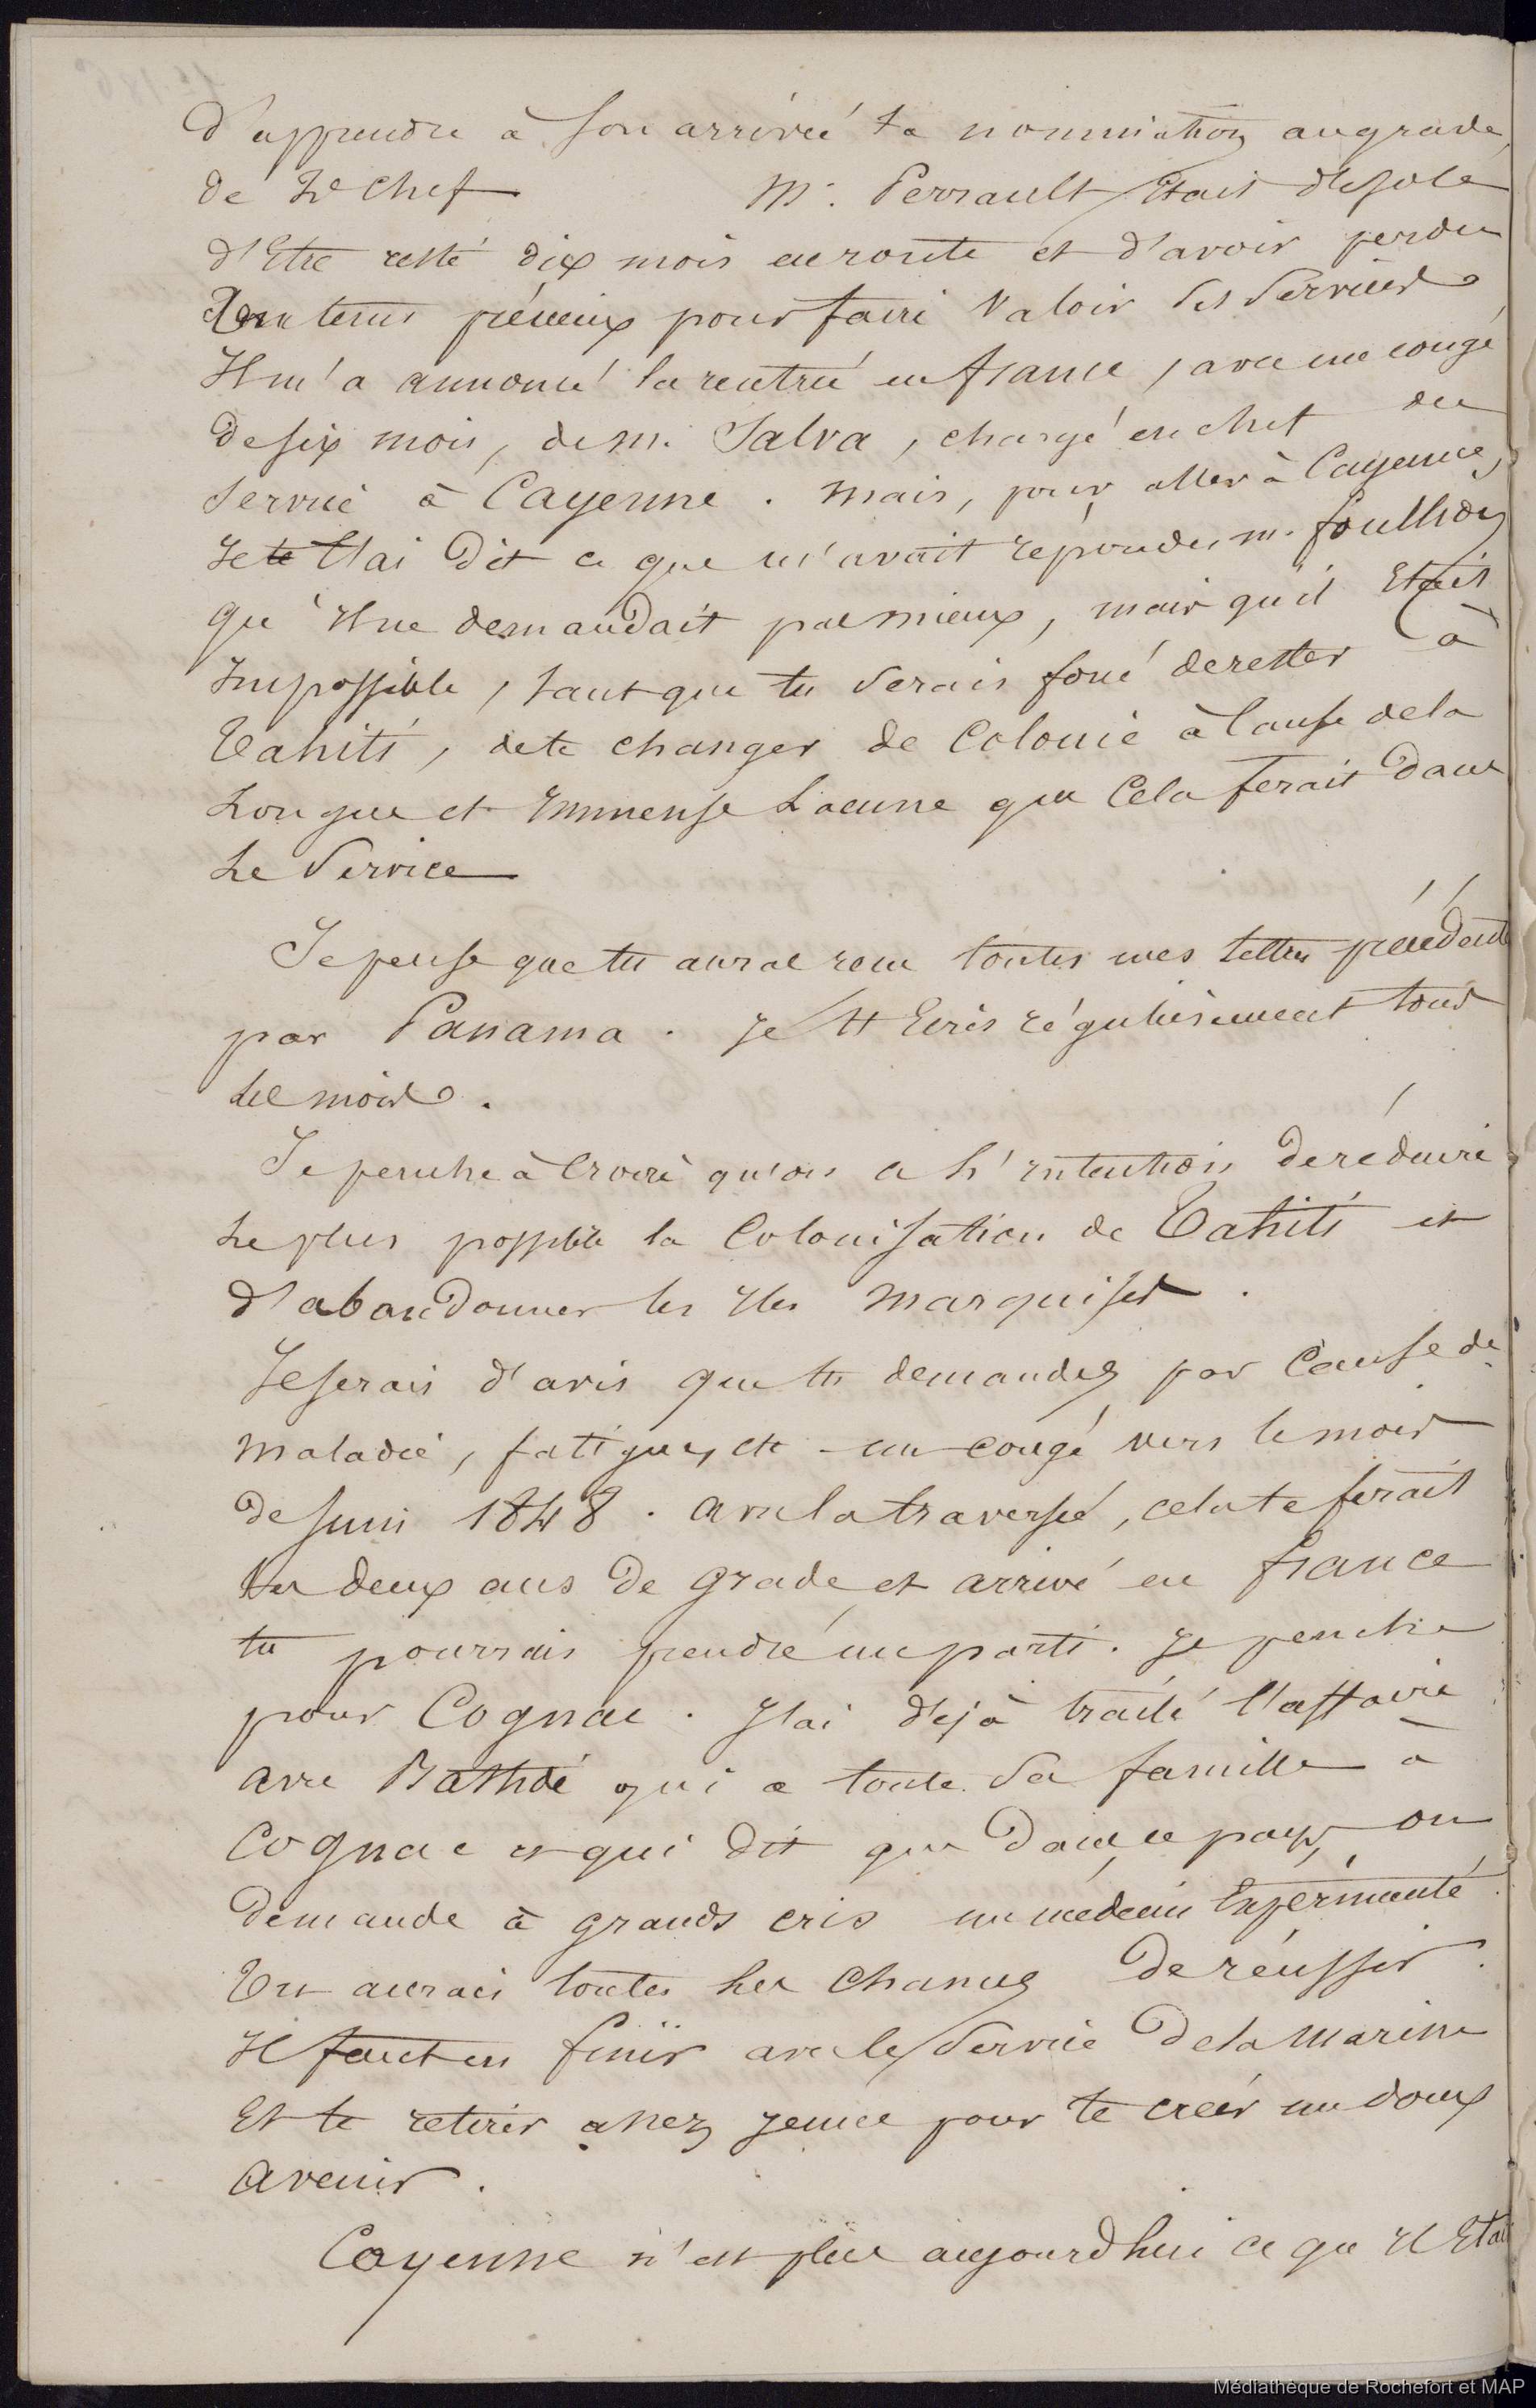 d'apprendre à son arrivée ta nomination au grade
de 2d chef M. Perrault Etait désolé
d'Etre resté dix mois en route et d'avoir perdu
temps précieux pour faire valoir ses services
Il m'a annoncé la rentrée en france, avec un congé
de six mois, de M. Salva, chargé en chef du
service à Cayenne. Mais, pour aller à Cayenne,
Je te l'ai dit ce que m'avait répondu M.
qu'Il ne demandait pas mieux, mais qu'il Etait
Impossible, tant que tu serais forcé de rester à
Tahiti, de te changer de Colonie à Cause de la
Longue et Immense Lacune que Cela ferait dans
Le Service
Je pense que tu auras reçu toutes mes lettres précédentes
par Panama. Je t'Ecris régulièrement tous
Les mois.
Je penche à Croire qu'on a L'intention de réduire
Le plus possible la Colonisation de Tahiti et
d'abandonner les Iles Marquises.
Je serais d'avis que tu demandes par Cause de
Maladie, fatigues, etc un congé vers le mois
de Juin 1848. avec la traversée, cela te ferait
tes deux ans de grade et arrivé en france
tu pourrais prendre un parti. Je penche
pour Cognac. J'ai déjà traité l'affaire
avec qui a toute Sa famille à
Cognac et qui dit que Dans ce pays, on
Demande à grands cris un médecin Expérimenté
Tu aurais toutes les Chances De réussir.
Il faut en finir avec le Service De la Marine
Et te retirer assez Jeune pour te créer un doux
avenir.
Cayenne n'est plus aujourdhui ce qu'Il Etai
Médiathèque de Rochefort et MAP